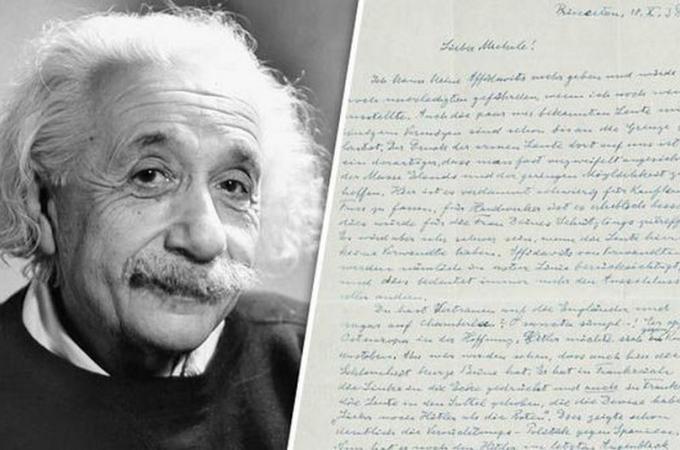 Princeton, 10. X. 38
Lieber Michele!
Ich kann keine Affidavits mehr geben und würde
noch unerledigten gefährden, wenn ich noch
ausstellte. Auch das paar mir bekannten Leute mit
sind schon bis an die Grenze
Der Druck der armen Leute dort auf uns ist
ein derartiger, dass man fast verzweifelt angesichts
der Masse Elends und der geringen Möglichkeit zu
helfen. Hier ist es verdammt schwierig für Kaufleute
Fuss zu fassen, für Handwerker ist es erheblich besser
dies würde für die Frau Deines Schützlings
Es wird aber sehr schwer sein, wenn die Leute hier
keine Verwandte haben. Affidavits von Verwandten
werden nämlich in erster Linie berücksichtigt,
und dies bedeutet immer mehr den Ausschluss
aller andern.
Du hast Vertrauen auf die Engländer und
sogar auf Chamberlain? O sancta simpl..!
Osteuropa in der Hoffnung, Hitler möchte sich
austoben. Aber wir werden sehen, dass auch hier die
Schlauheit kurze Beine hat. Er hat in Frankreich
die Linke in die Ecke gedrückt und auch in
die Leute in den Sattel gehoben, die die Devise haben
"Lieber noch Hitler als die Roten". Dies zeigte schon
deutlich die Vernichtungs-Politik gegen Spanien.
hat er noch den Hitler im letzten Augenblick